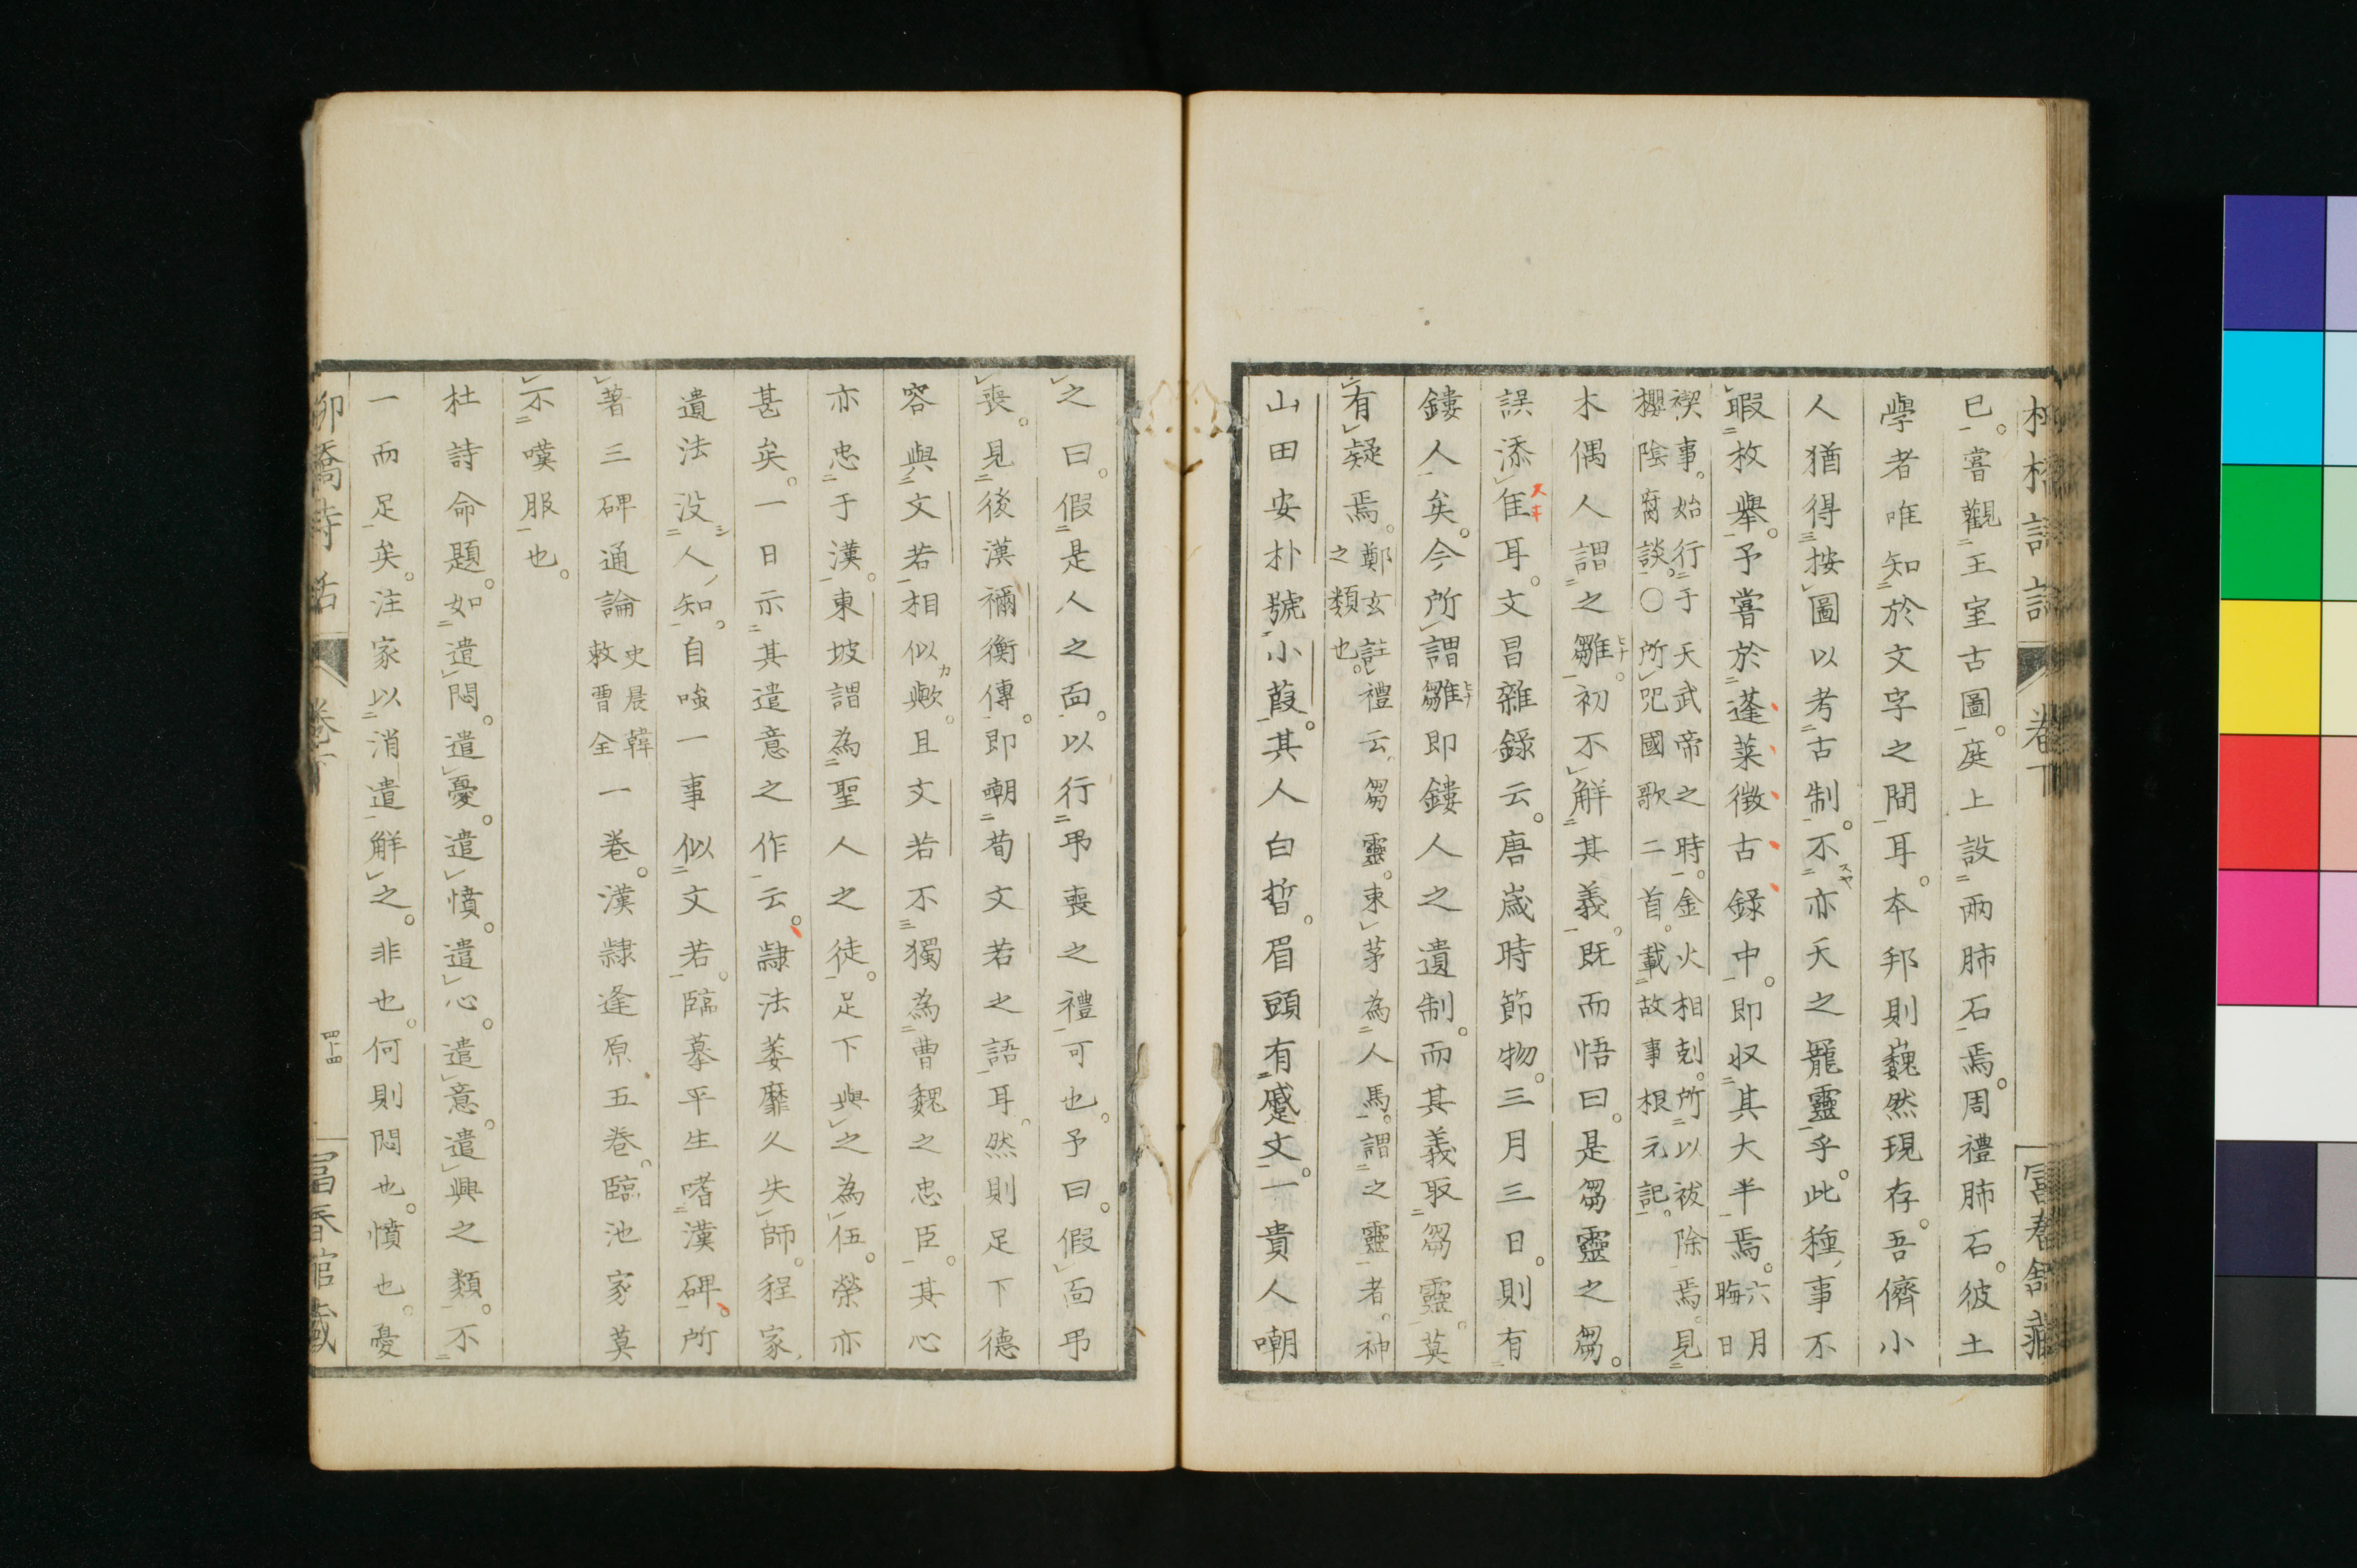 柳橋詩話 卷下 富春館藏
已。嘗觀王室古圖。庭上設兩肺石焉。周禮肺石。彼土
學者唯知於文字之間耳。本邦則巍然現存。吾儕小
人猶得按圖以考古制。不亦天之寵靈乎。此種事不
暇枚舉。予嘗於蓬萊徴古錄中。即収其大半焉。六月晦日
禊事。始行于天武帝之時。金火相剋。所以祓除焉。見
櫻陰腐談。〇所咒國歌二首。載故事根元記。
木偶人謂之雛。初不解其義。既而悟曰。是芻靈之芻。
誤添隹耳。文昌雜錄云。唐歳時節物。三月三日。則有
鏤人矣。今所謂雛即鏤人之遺制。而其義取芻靈。莫
有疑焉。鄭玄註禮云芻靈。束茅為人馬。謂之靈者。神之類也。
山田安朴號小葭。其人白晳。眉頭有蹙文。一貴人嘲
之曰。假是人之面。以行弔喪之禮可也。予曰。假面弔
喪。見後漢禰衡傳。即嘲荀文若之語耳。然則足下德
容與文若相似歟。且文若不獨為曹魏之忠臣。其心
亦忠于漢。東坡謂為聖人之徒。足下與之為伍。榮亦
甚矣。一日示其遣意之作云。隷法萎靡久失師。程家
遺法没人知。自嗤一事似文若。臨摹平生嗜漢碑。所
著三碑通論史晨韓敕曹全一卷。漢隷逢原五卷。臨池家莫
不嘆服也。
杜詩命題。如遣悶。遣憂。遣憤。遣心。遣意。遣興之類。不
一而足矣。注家以消遣解之。非也。何則悶也。憤也。憂
柳橋詩話 卷下 四十四 富春館藏